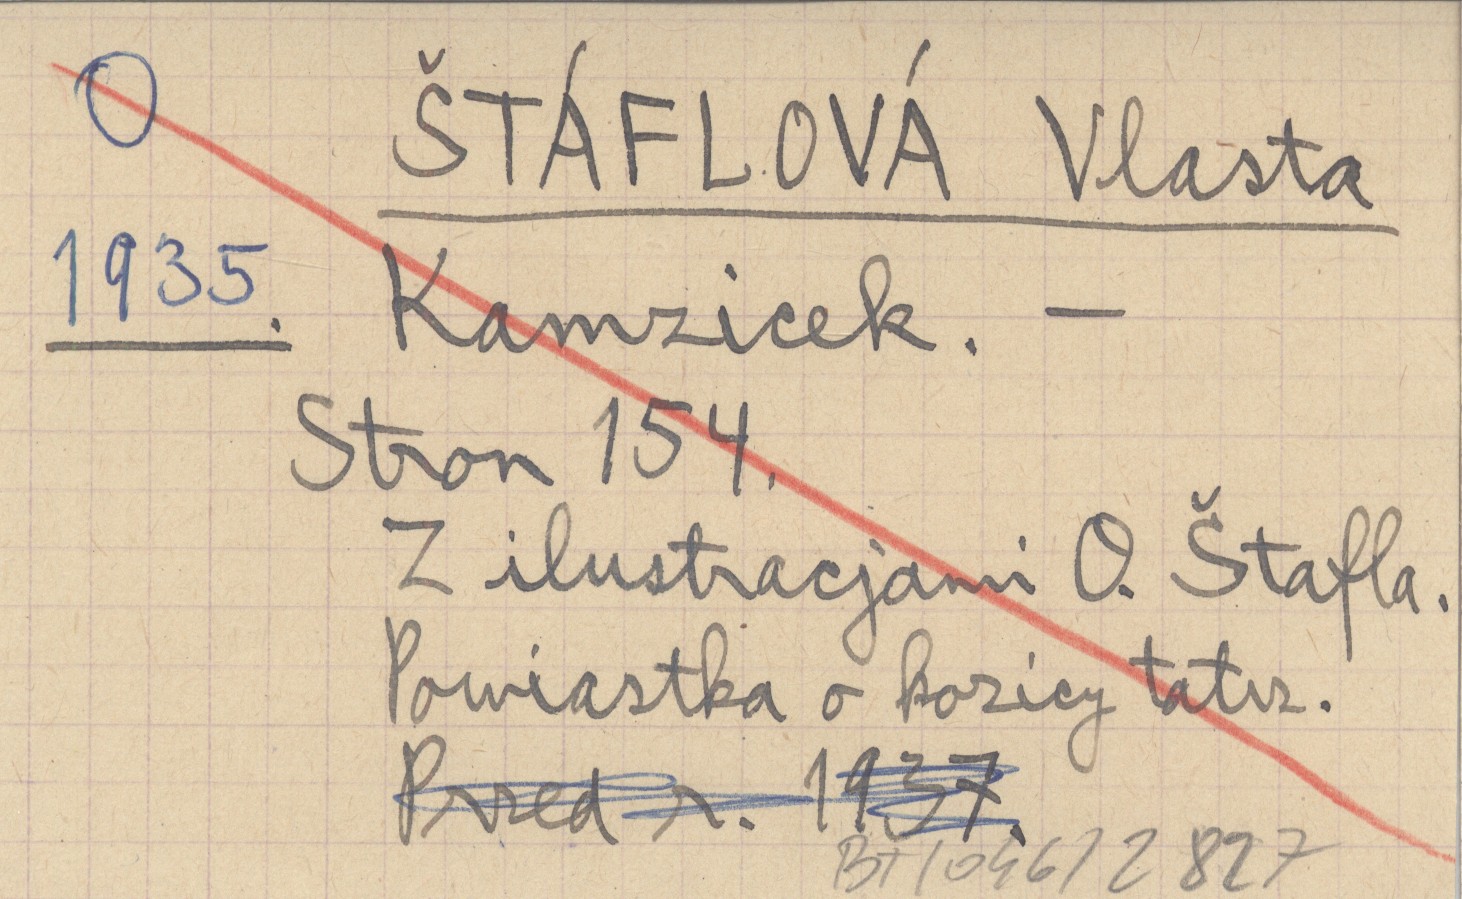 O
ŠTÁFLOVÁ Vlasta
1935.
Kamzicek. –
Stron 154.
Z ilustracjami O. Štafla.
Powiastka o kozicy tatrz.
Przed r. 1937.
BT/046/2 827